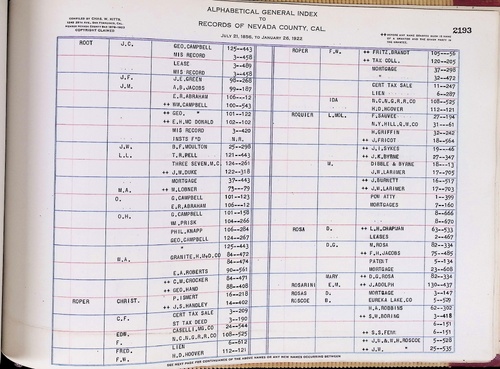 ALPHABETICAL GENERAL INDEX
TO
RECORDS OF NEVADA COUNTY, CAL.
JULY 21, 1856, TO JANUARY 26, 1922.
COMPILED BY CHAS. W. KITTS,
COPYRIGHT CLAIMED
2193
ROOT J.C. GEO. CAMPBELL 125—443
MIS RECORD 3—458
LEASE 3—489
MIS RECORD 3—458
J.F. J.E. GREEN 98—268
J.M. A.B. JACOBS 99—187
E.R. ABRAHAM 106—12
++ WM. CAMPBELL 100—543
++ GEO. " 101—122
++ E.H. MC DONALD 102—102
MIS RECORD 3—420
INSTS F'D N.R.
J.W. B.F. MOULTON 25—298
L.L. T.R. PELL 121—443
THREE SEVEN.M.C. 134—261
++ J.W. DUKE 122—318
MORTGAGE 37—443
M.A. ++ W. LOBNER 73—79
O. G. CAMPBELL 101—123
E.R. ABRAHAM 106—12
O.H. G. CAMPBELL 101—158
W. PRISK 104—266
PHIL. KNAPP 106—284
GEO. CAMPBELL 124—267
" 125—443
W.A. GRANITE, H.&D.CO 84—472
84—474
E.A. ROBERTS 90—561
++ C.W. CROCKER 84—471
++ GEO. HAND 88—408
P. ISMENT 16—218
ROPER CHRIST. ++ J.S. HANDLEY 14—402
CERT TAX SALE 3—209
C.F. ST TAX DEED 3—190
CASELLI, MG. CO 24—544
EDW. N.C.N.G.R.R. CO 108—525
F. LIEN 6—612
FRED. H.D. HOOVER 112—121
F.W.
ROPER F.W. ++ FRITZ, BRANDT 105—56
++ TAX COLL. 120—205
MORTGAGE 37—298
" 32—472
CERT TAX SALE 11—247
LIEN 6—287
IDA N.C.N.G.R.R. CO 108—525
H.D. HOOVER 112—121
ROQUIER L. MOL. F. SAUVEE 27—194
N.Y. HILL. Q.M. CO 31—61
H. GRIFFIN 32—242
++ J. FRICOT 18—564
++ J.I. SYKES 19—46
++ J.K. BYRNE 27—347
M. DIBBLE & BYRNE 18—13
J.W. LARIMER 17—705
++ J. BURNETT 16—517
++ J.W. LARIMER 17—703
POW ATTY 1—399
MORTGAGES 7—160
8—666
8—670
ROSA D. ++ L.M. CHAPMAN 63—533
LEASES 2—467
D.G. M. ROSA 82—334
++ F.H. JACOBS 75—485
PATENT 5—134
MORTGAGE 23—608
MARY ++ D.G. ROSA 82—334
ROSARINI E.M. ++ J. ADOLPH 130—437
ROSAS D. MORTGAGE 3—147
ROSCOE H. EUREKA LAKE.CO 5—529
H.A. ROBBINS 62—302
++ S.W. BORING 3—418
6—151
++ S.S. FENN 6—151
++ J.U. & H.H. ROSCOE 5—528
++ J.W. " 25—535